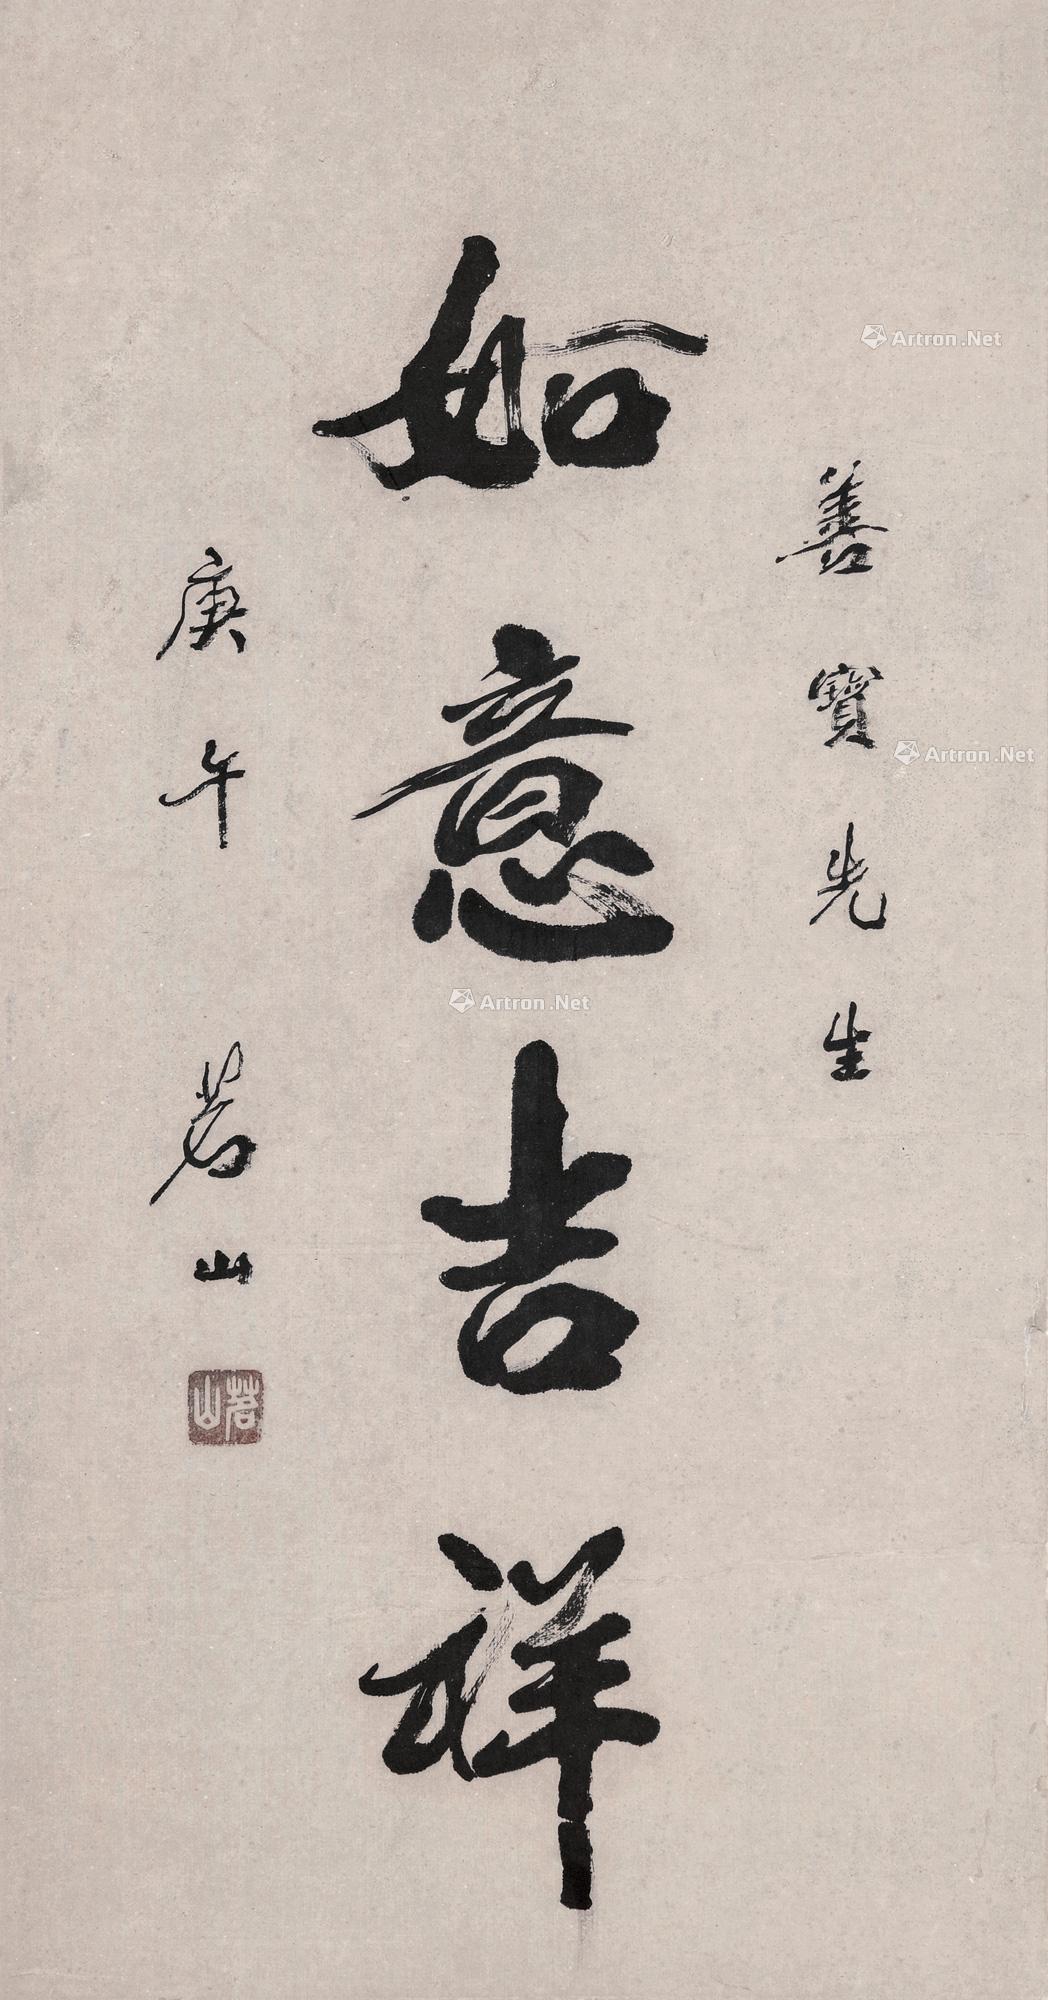 善寶先生
如意吉祥
庚午 茗山
茗山
Artron.Net
Artron.Net
Artron.Net